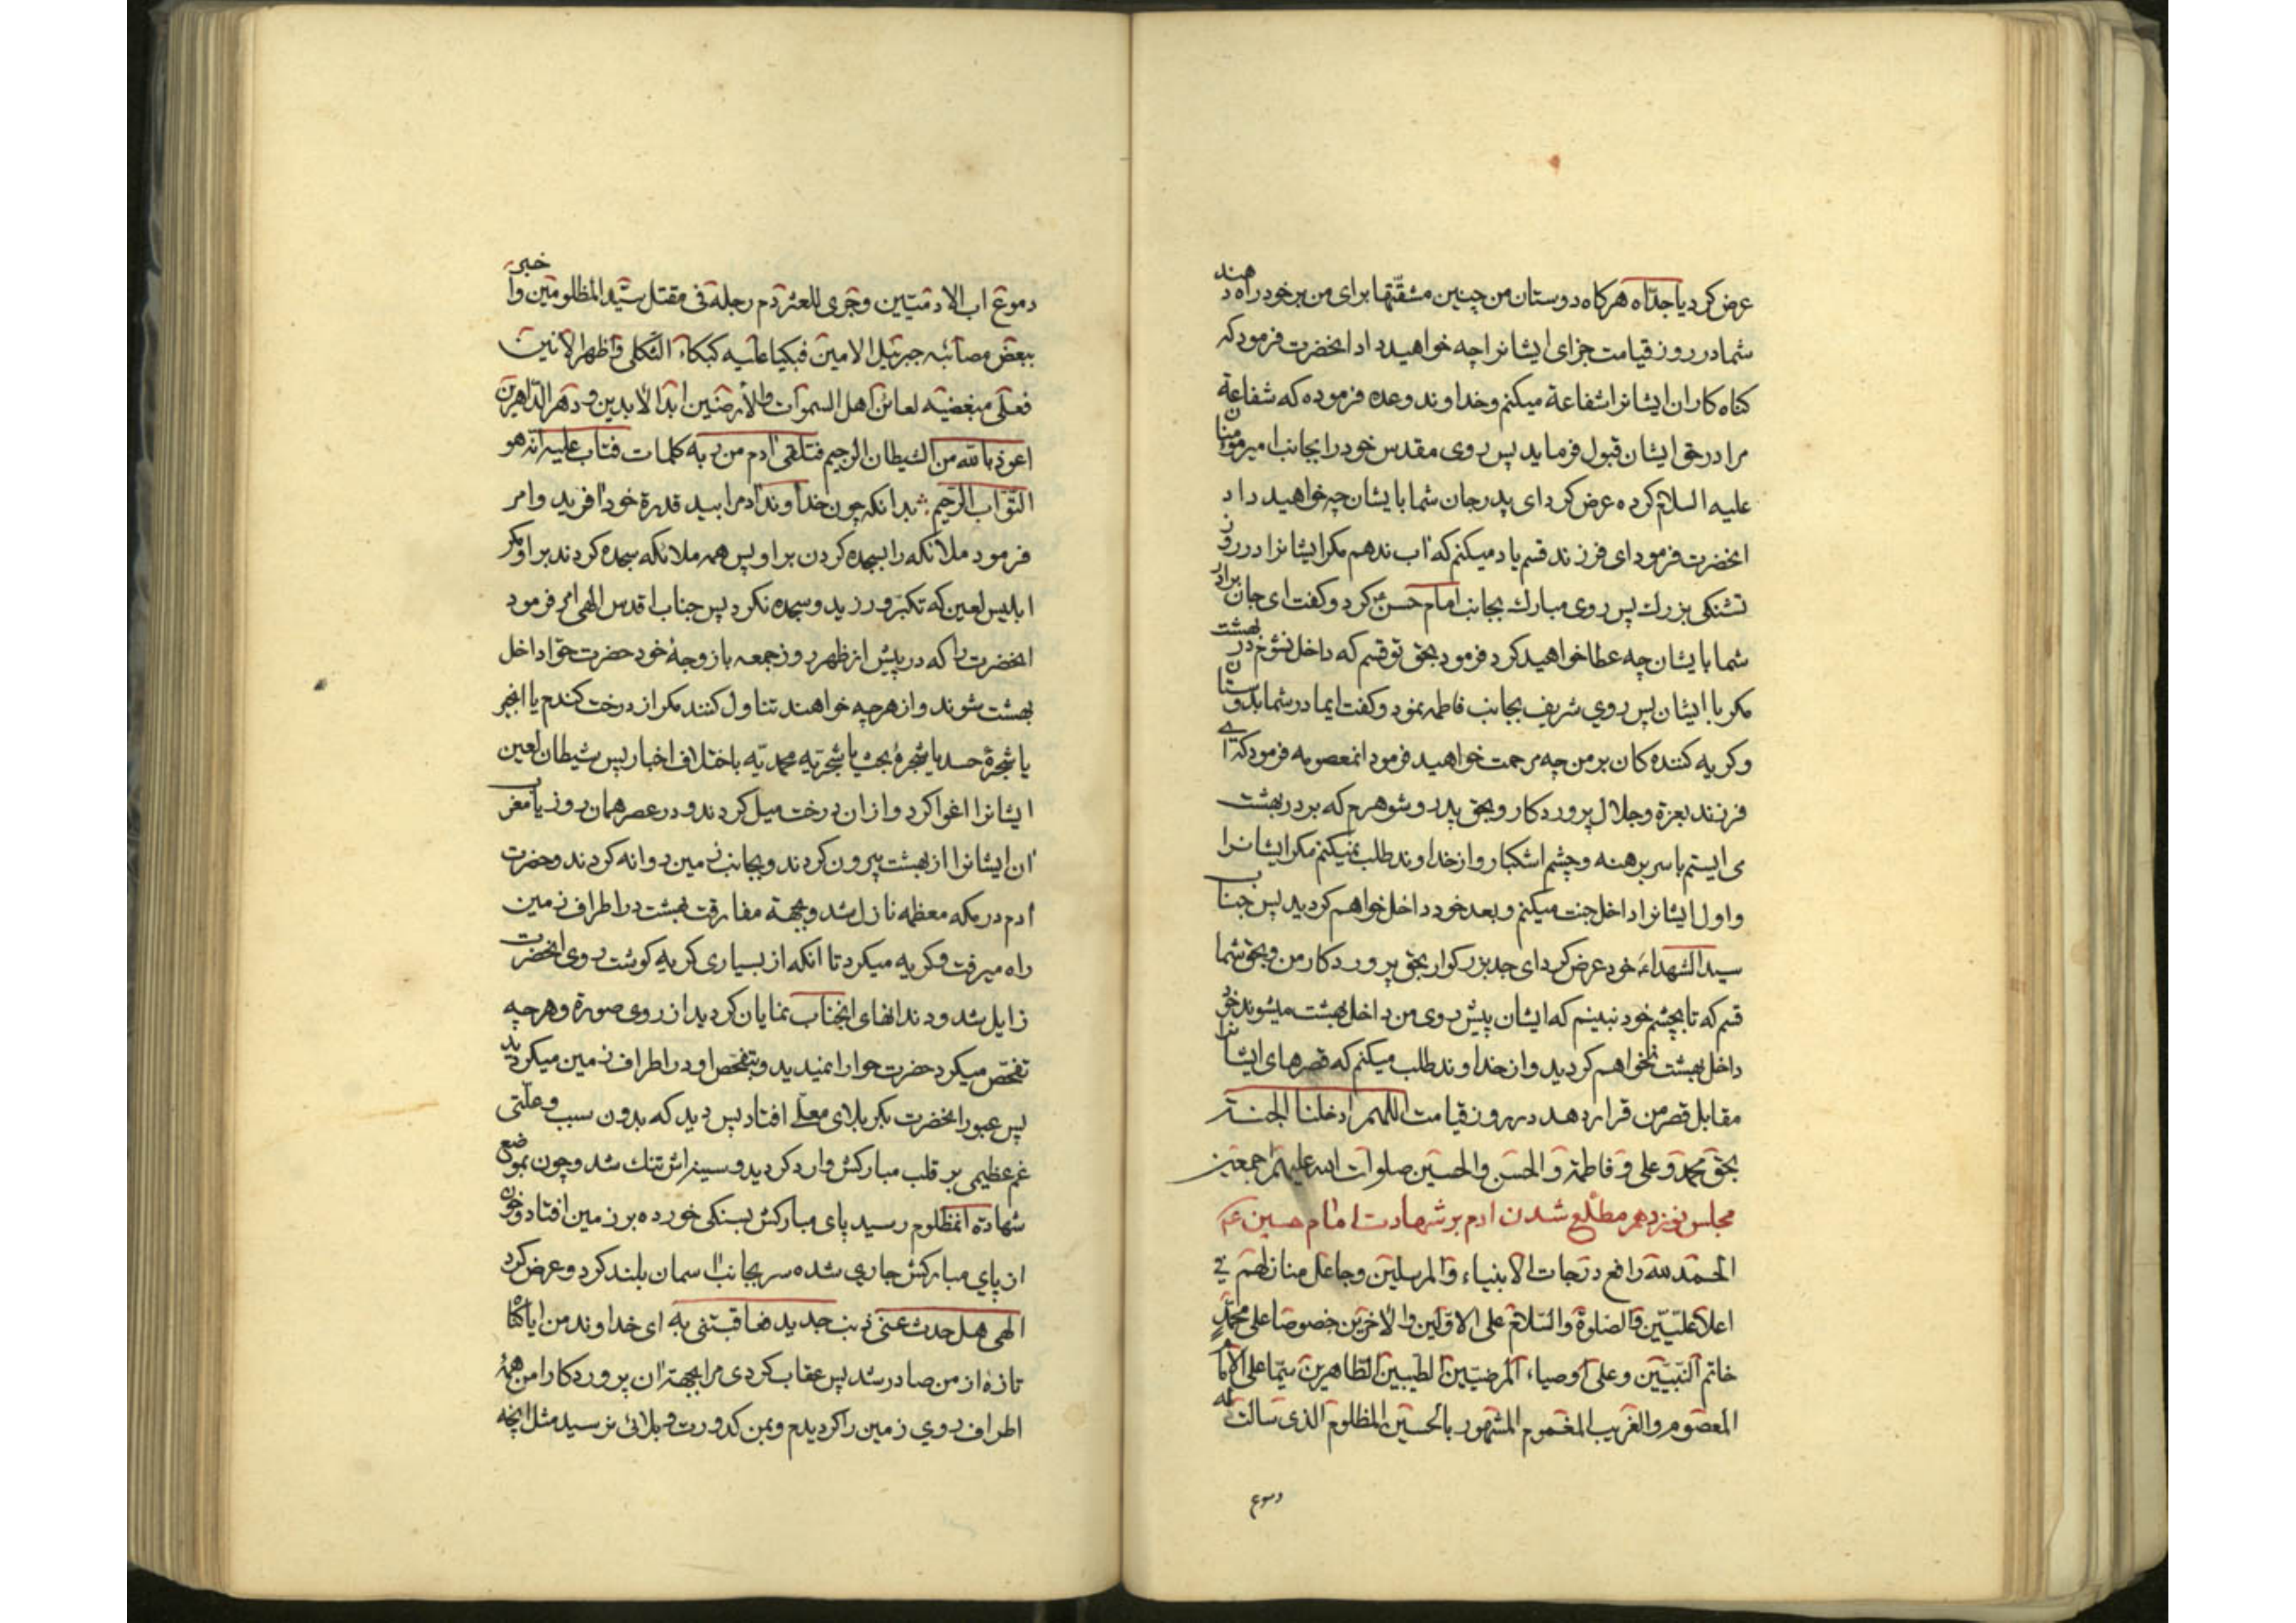 عرض کرد یا جدّاه هرکاه دوستان من چنین مشقّتها برای من بر خود راه دهند
شما در روز قیامت جزای ایشانرا چه خواهید داد انحضرت فرمود که
کناه کاران ایشانرا شفاعة میکنم و خداوند وعده فرموده که شفاعة
مرا در حق ایشان قبول فرماید پس روی مقدس خود را بجانب امیر مومنان
علیه السلام کرده عرض کرد ای پدر جان شما با یشان چه خواهید داد
انحضرت فرمود ای فرزند قسم یاد میکنم که آب ندهم مکر ایشانرا در روز
تشنکی بزرك پس روی مبارك بجانب امام حسن کرد و کفت ای جان برادر
شما با یشان چه عطا خواهید کرد فرمود بحق تو قسم که داخل نشوم در بهشت
مکر با ایشان پس روي شریف بجانب فاطمه نمود و کفت ایمادر شما بدوستان
و کریه کننده کان بر من چه مرحمت خواهید فرمود انمعصومه فرمود که ای
فرزند بعزة و جلال پروردکار و بحق پدر و شوهرم که بر در بهشت
می ایستم با سر برهنه و چشم اشکبار و از خداوند طلب نمیکنم مکر ایشانرا
و اول ایشانرا داخل جنت میکنم و بعد خود داخل خواهم کردید پس جناب
سید الشهداء خود عرض کرد ای جد بزرکوار بحق پروردکار من و بحق شما
قسم که تا بچشم خود نبینم که ایشان پیش روی من داخل بهشت میشوند خود
داخل بهشت نخواهم کردید و از خداوند طلب میکنم که قصرهای ایشانرا
مقابل قصر من قرار دهد در روز قیامت اللهم ادخلنا الجنة
بحق محمد و علی و فاطمة و الحسن و الحسین صلوات الله علیهم اجمعین
مجلس نوزدهم مطّلع شدن ادم بر شهادت امام حسین ع
الحمد لله رافع درجات الانبیاء و المرسلین و جاعل منازلهم في
اعلا علیّین و الصلوة و السّلام علی الاوّلین و الاخرین خصوصا علی محمّدٍ
خاتم النّبیّین و علی اوصیاء المرضیّین الطیبین الطّاهرین سیّما علی الامام
المعصوم و الغریب المغموم المشهور بالحسین المظلوم الذی سالت له
دموع
دموع اب الادمیّین و جری للعثر دم رجله فی مقتل سیّد المظلومین و اخبره
ببعض مصائبه جبرئیل الامین فبکیا علیه کبکاء الثکلی و اظهر الانین
فعلی مبغضیه لعائن اهل السموات و الارضین ابد الابدین و دهر الدّاهرین
اعوذ بالله من الشیطان الرجیم فتلقی ادم من ربه کلمات فتاب علیه انه هو
التوّاب الرّحیم بدانکه چون خداوند ادم را بید قدرة خود آفرید و امر
فرمود ملائکه را بسجده کردن بر او پس همه ملائکه سجده کردند بر او مکر
ابلیس لعین که تکبّر ورزید و سجده نکرد پس جناب اقدس الهی امر فرمود
انحضرت را که در پیش از ظهر روز جمعه با زوجهٔ خود حضرت حوّا داخل
بهشت شوند و از هر چه خواهند تناول کنند مکر از درخت کندم یا انجیر
یا شجرهٔ حسد یا شجرهٔ یا شجرهٔ محمدیّه باختلاف اخبار پس شیطان لعین
ایشانرا اغوا کرد و از ان درخت میل کردند و در عصر همان روز یا مغرب
ان ایشانرا از بهشت بیرون کردند و بجانب زمین روانه کردند و حضرت
ادم در مکه معظمه نازل شد و بجهة مفارقت بهشت در اطراف زمین
راه میرفت و کریه میکرد تا انکه از بسیاری کریه کوشت روی انحضرت
زایل شد و دندانهای انجناب نمایان کردید از روی صورة و هر چه
تفحّص میکرد حضرت حوا را نمیدید و بتفحّص او در اطراف زمین میکردید
پس عبور انحضرت بکربلای معلّے افتاد پس دید که بدون سبب و علّتی
غم عظیمی بر قلب مبارکش وارد کردید و سینه اش تنك شد و چون بموضع
شهادة انمظلوم رسید پای مبارکش بسنکی خورده بر زمین افتاد و خون
از پاي مبارکش جاري شده سر بجانب آسمان بلند کرد و عرض کرد
الهی هل حدث عنی ذنب جدید فعاقبتنی به ای خداوند من ایا کناه
تازهٔ از من صادر شد پس عقاب کردی مرا بجهة ان پروردکارا من همهٔ
اطراف روي زمین را کردیدم و بمن کدورت و بلائی نرسید مثل انچه